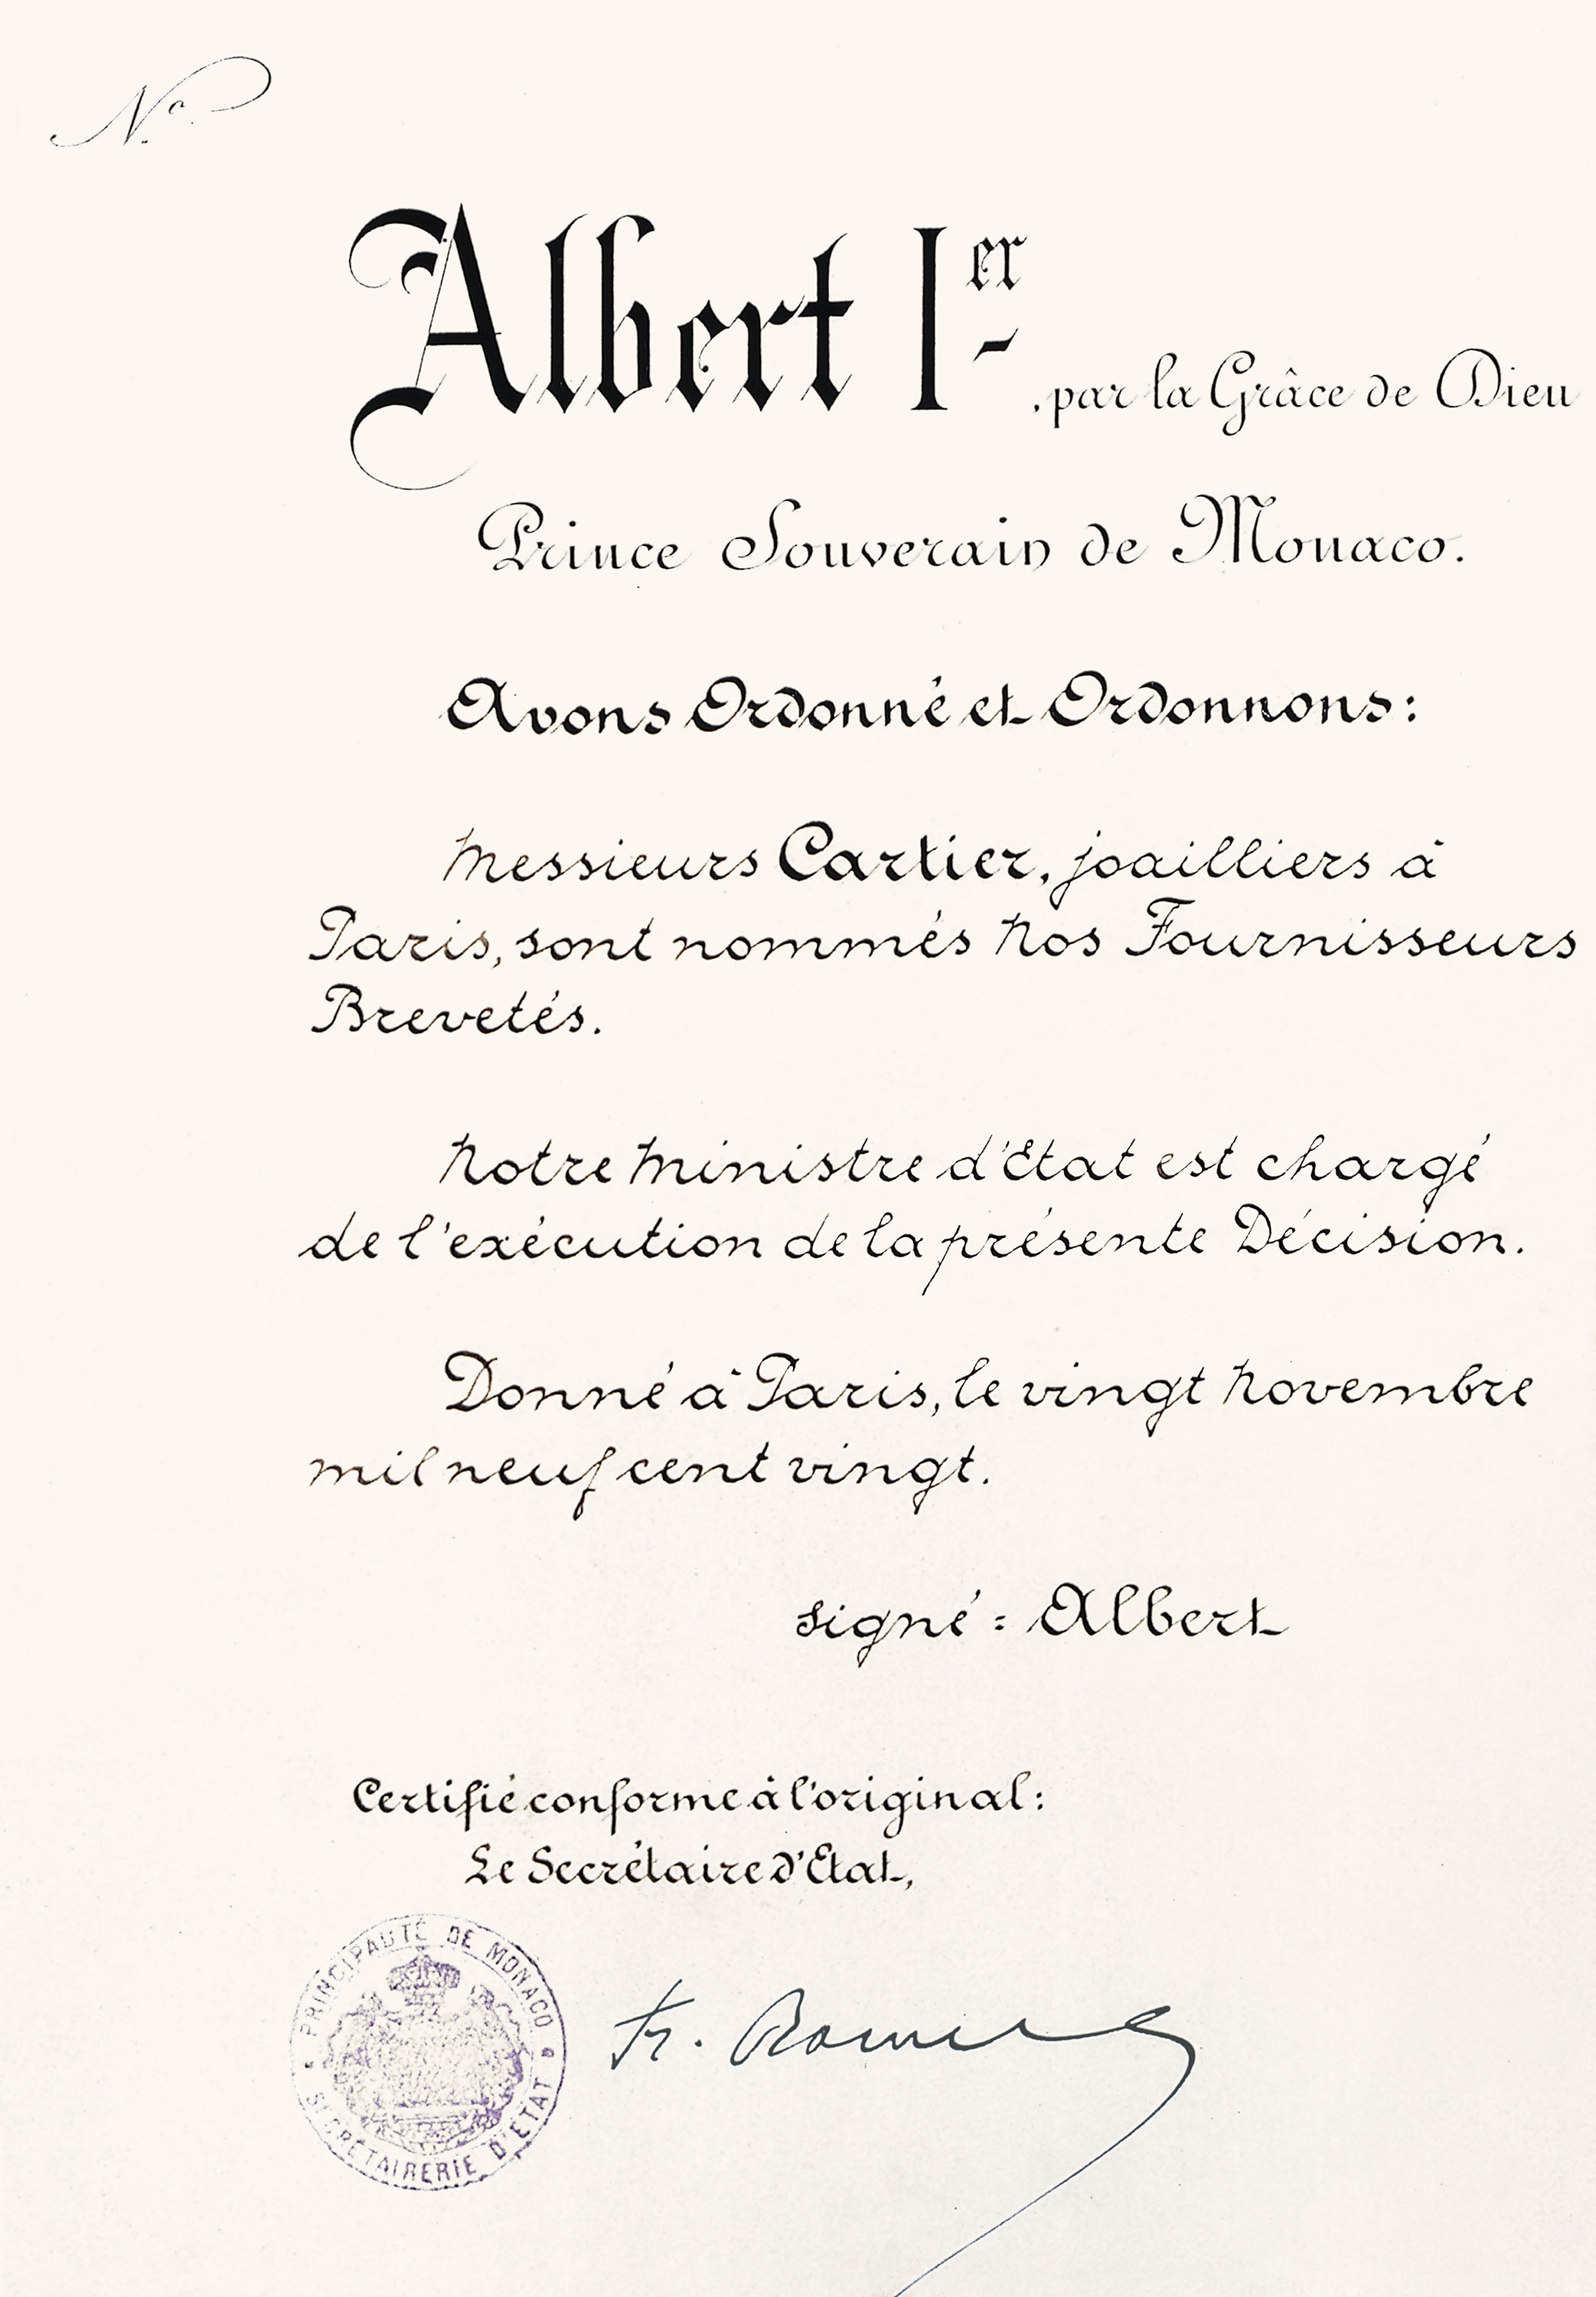 Nº.
Albert Ier, par la Grâce de Dieu
Prince Souverain de Monaco.
Avons Ordonné et Ordonnons:
Messieurs Cartier, joailliers à
Paris, sont nommés Nos Fournisseurs
Brevetés.
Notre Ministre d'État est chargé
de l'exécution de la présente Décision.
Donné à Paris, le vingt Novembre
mil neuf cent vingt.
signé: Albert
Certifié conforme à l'original:
Le Secrétaire d'État,
PRINCIPAUTÉ DE MONACO
SECRÉTAIRERIE D'ÉTAT
Fr.